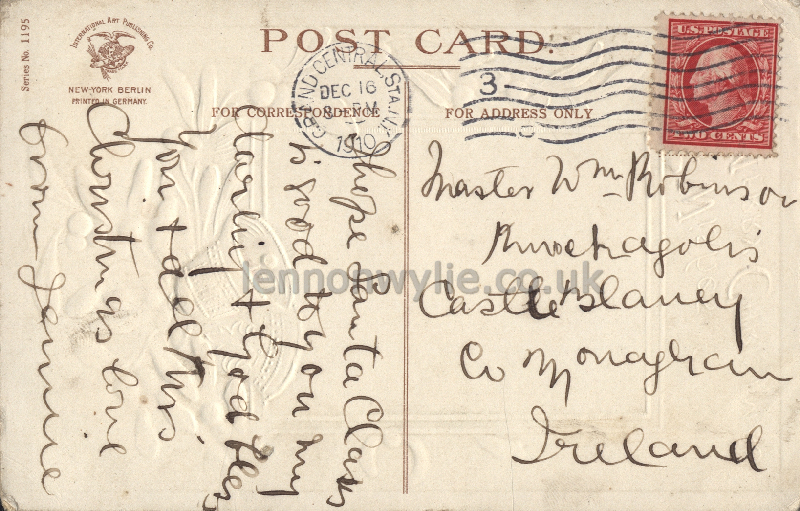 Series No. 1195
INTERNATIONAL ART PUBLISHING Co.
NEW-YORK BERLIN
PRINTED IN GERMANY.
POST CARD.
FOR CORRESPONDENCE
FOR ADDRESS ONLY
GRAND CENTRAL STA. N.Y.
DEC 16
8 PM
1910
3
U.S. POSTAGE
TWO CENTS
I hope Santa Claus
is good to you my
darling & God bless
you & all this
Christmas love
from Jennie
Master Wm Robinson
Castleblaney
Co Monaghan
Ireland
lennonwylie.co.uk